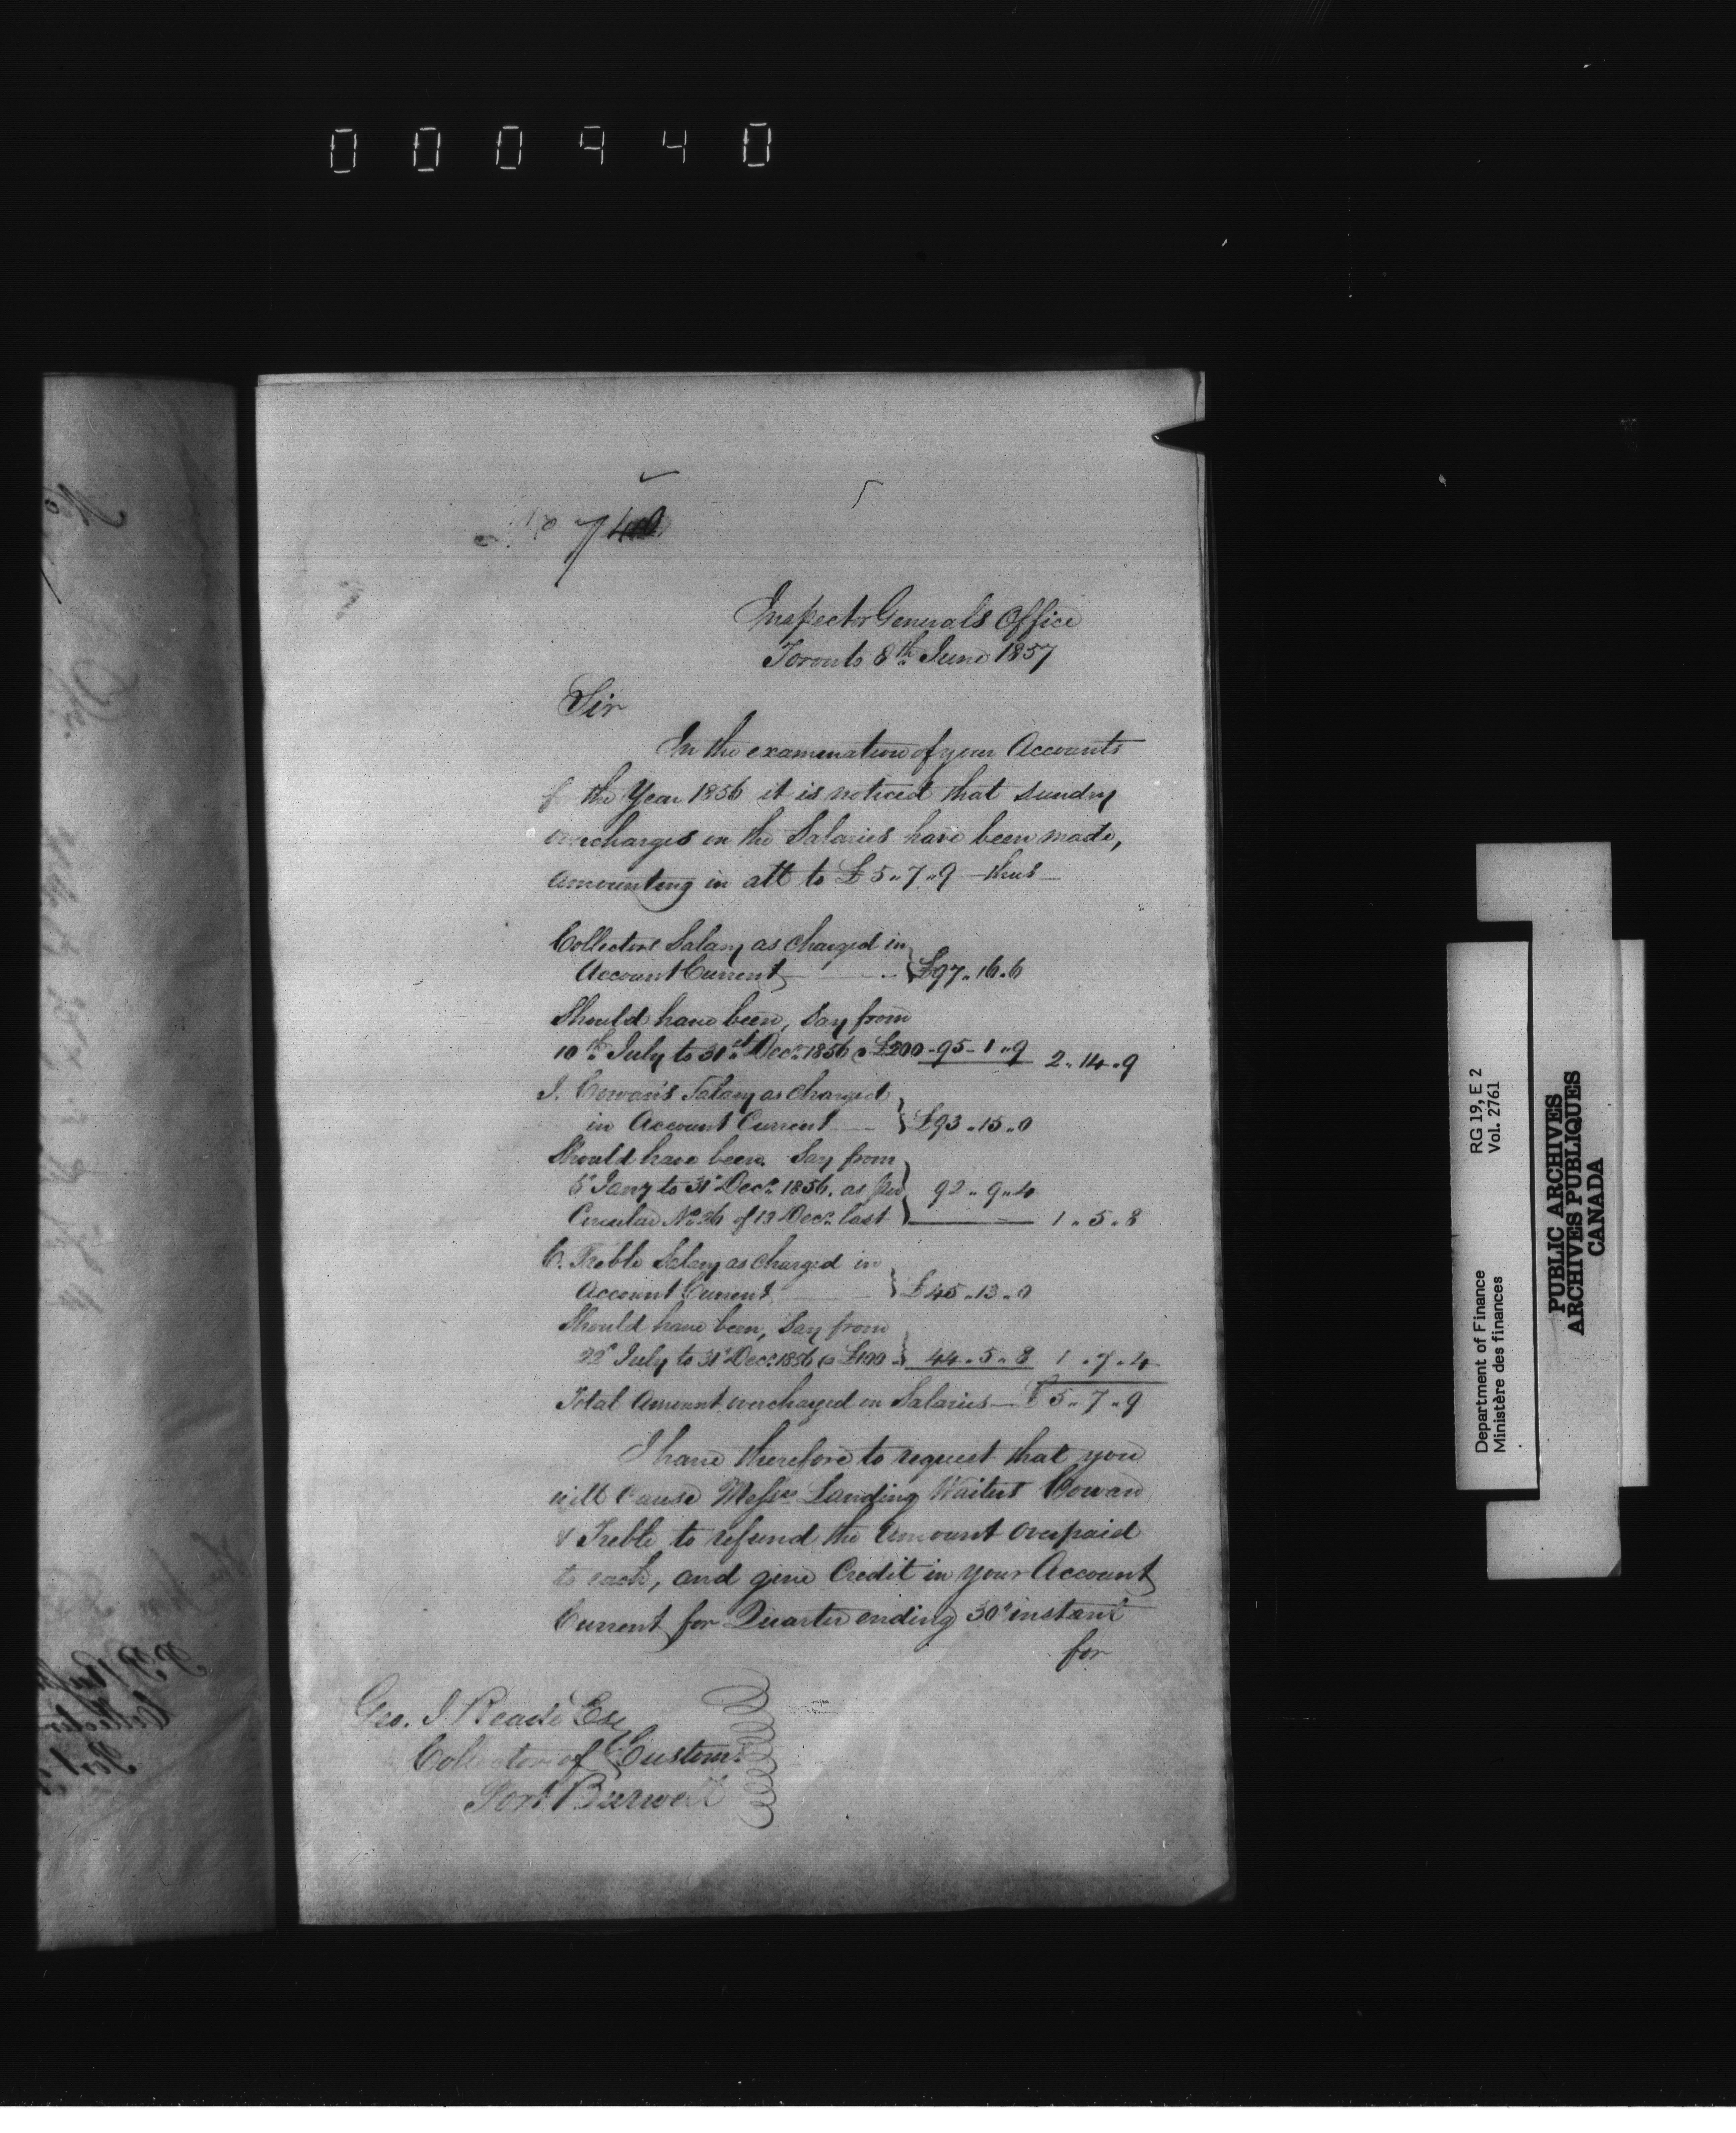 000940
No 740
Inspector Generals Office
Toronto 8th June 1857
Sir
In the examination of your Accounts
for the Year 1856 it is noticed that sundry
overcharges on the Salaries have been made,
amounting in all to £5 " 7 " 9 — thus —
Collectors Salary as charged in
Account Current £97 " 16 " 6
Should have been, Say from
10th July to 31st Decr 1856 @ £200 - 95 - 1 " 9 2 " 14 " 9
J. Cowan's Salary as charged
in Account Current £93 " 15 " 0
Should have been. Say from
6 Jany to 31 Decr 1856. as per 92 " 9 " 4
Circular No 26 of 13 Decr last 1 " 5 " 8
C. Treble Salary as charged in
Account Current £45 " 13 " 0
Should have been, Say from
22d July to 31 Decr 1856 @ £100 44 " 5 " 8 1 " 7 " 4
Total Amount overcharged on Salaries — £5 " 7 " 9
I have therefore to request that you
will cause Messrs Landing Waiters Cowan
& Treble to refund the Amount overpaid
to each, and give Credit in your Account
Current for Quarter ending 30th instant
for
Geo. J.
Collector of Customs
Port Burwell
Department of Finance RG 19, E 2
Ministère des finances Vol. 2761
PUBLIC ARCHIVES
ARCHIVES PUBLIQUES
CANADA